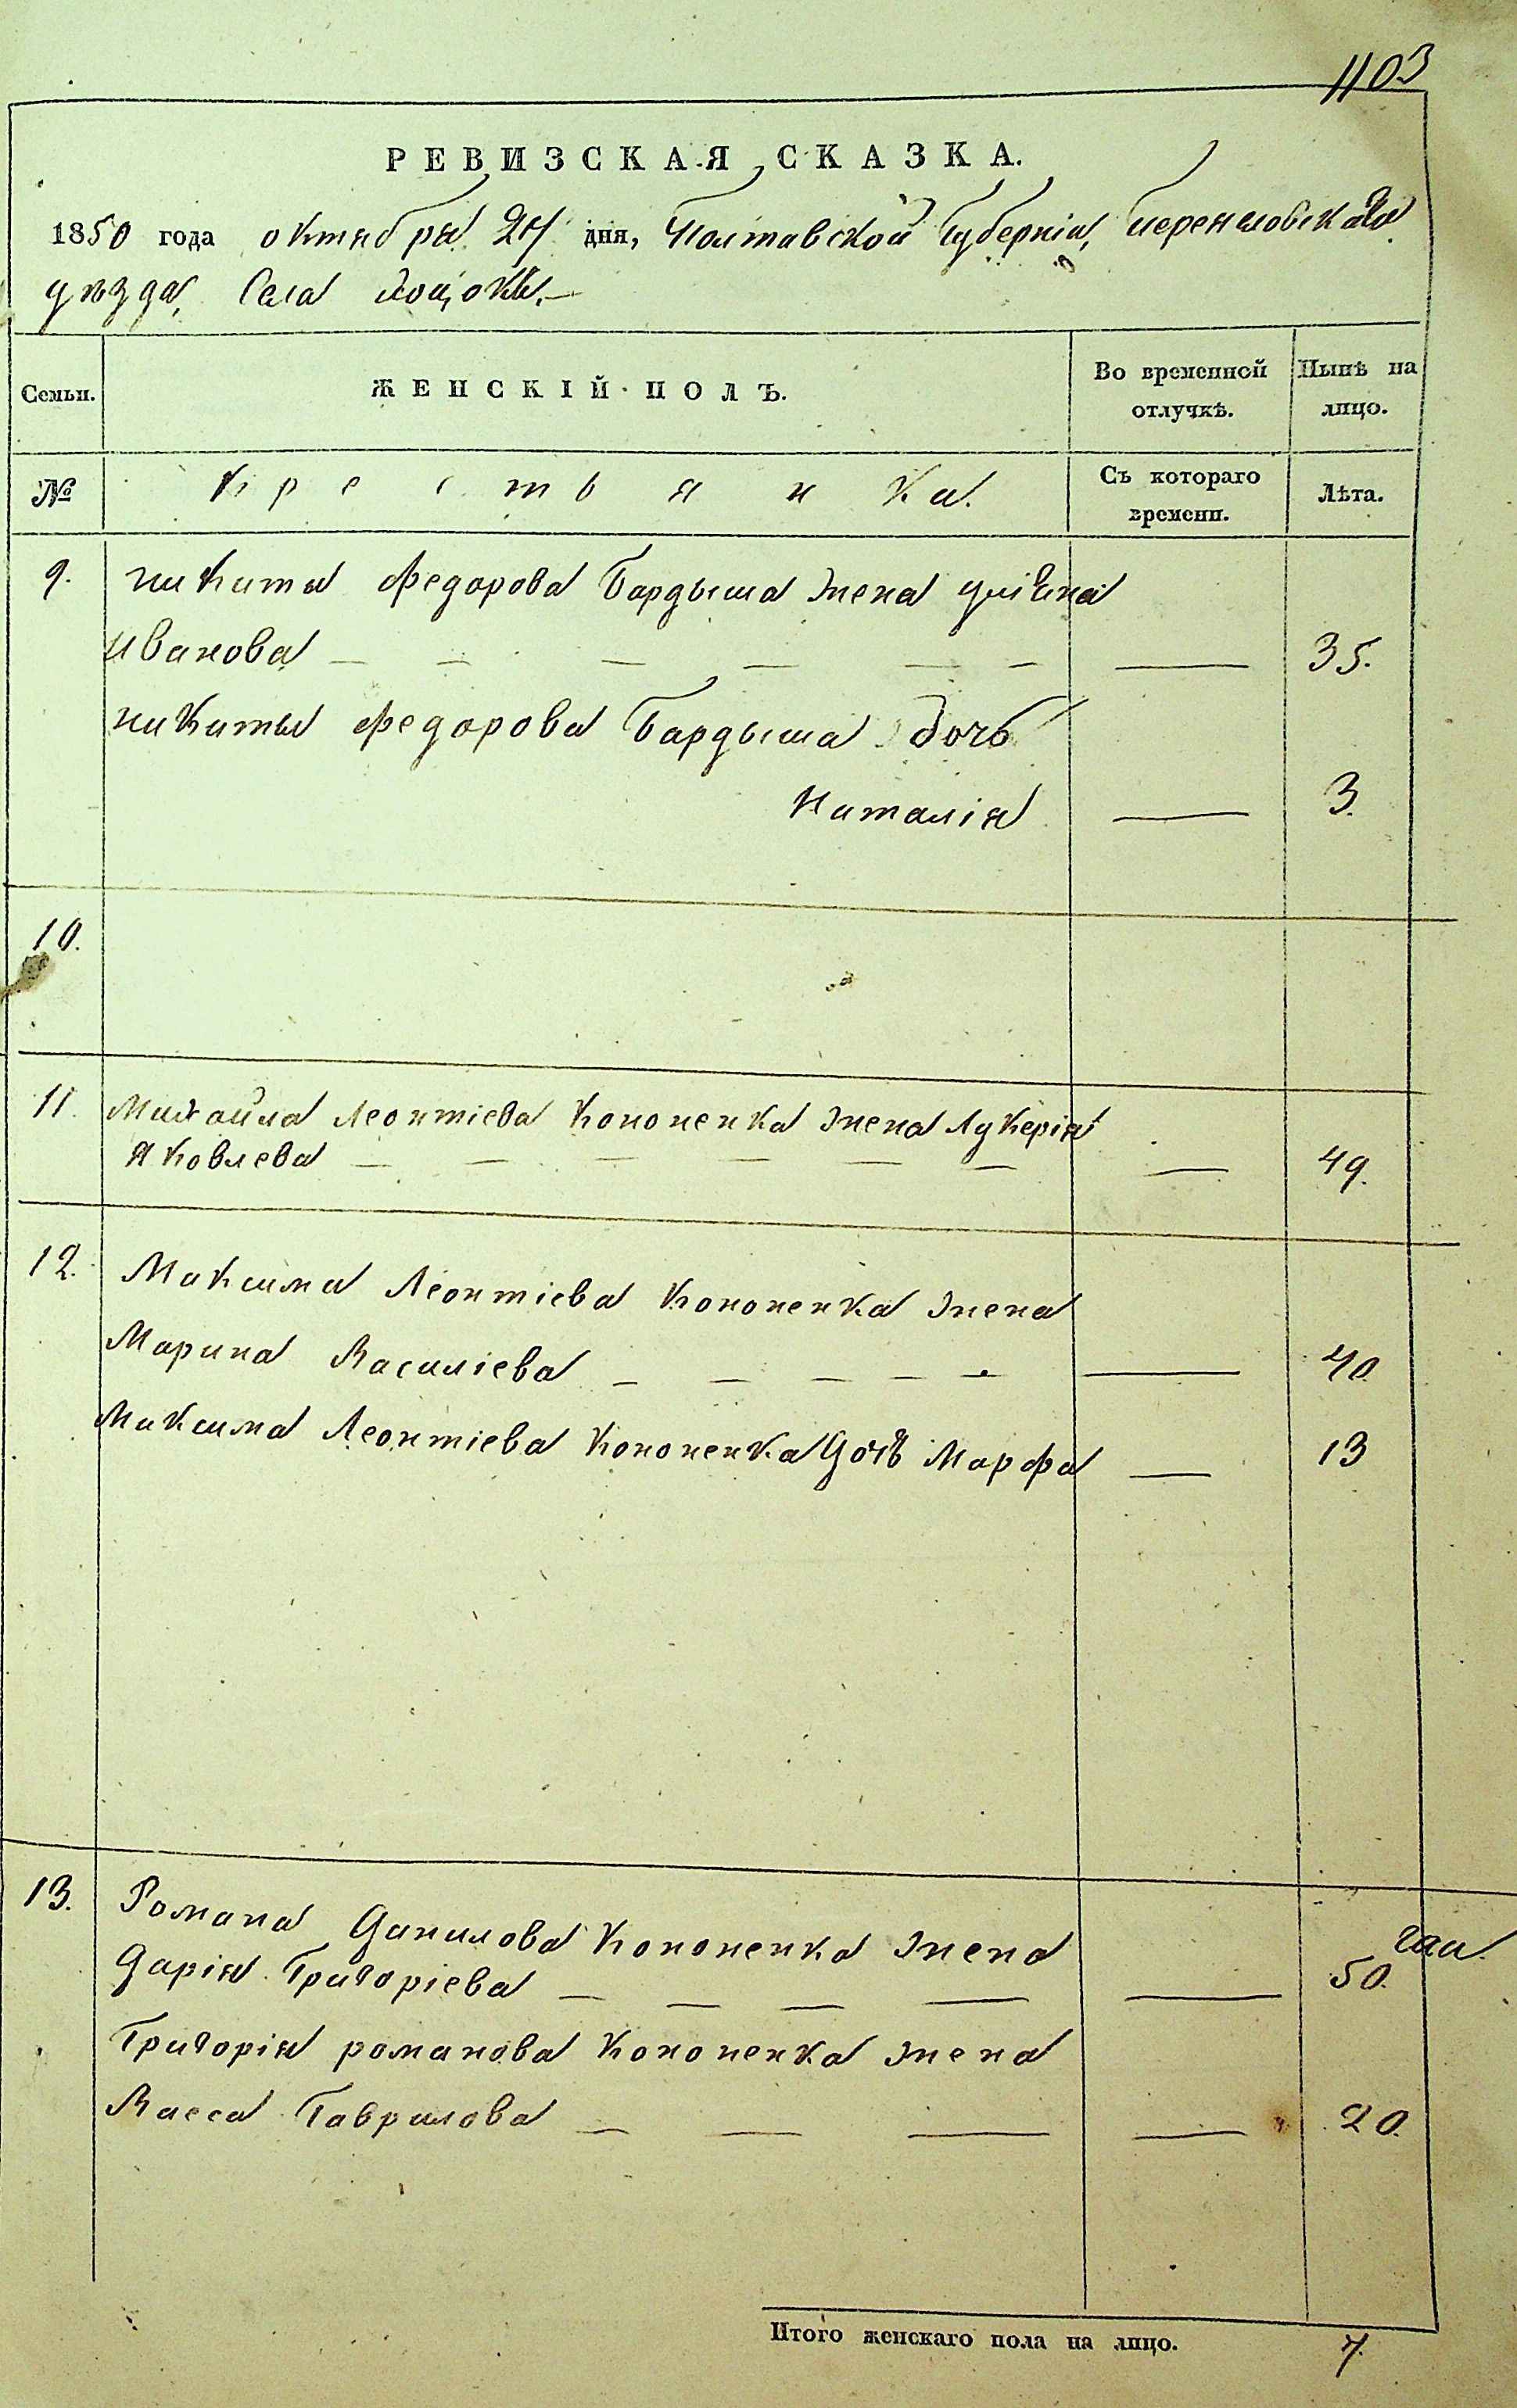 1103
РЕВИЗСКАЯ СКАЗКА.
1850 года октября 24 дня, Полтавской Губернiи, переяславскаго
уѣзда, Села
Семьи.
ЖЕНСКІЙ ПОЛЪ.
Во временной отлучкѣ.
Нынѣ на лицо.
№
крестьянка.
Съ котораго времени.
Лѣта.
9. никиты федорова Бардыша жена уліяна
иванова — — — — — — — 35.
никиты федорова Бардыша дочь
Наталія — 3.
10.
11. Михайла Леонтіева Кононенка жена Лукерія
Яковлева — — — — — — — 49.
12. Максима Леонтіева Кононенка жена
Марина Василіева — — — — — — 40.
Максима Леонтіева Кононенка дочь Марфа — 13
13. Романа Данилова Кононенка жена
Дарія Григоріева — — — — — 50.
Григорія романова Кононенка жена
Васса Гаврилова — — — — 20.
Итого женскаго пола на лицо. 7.